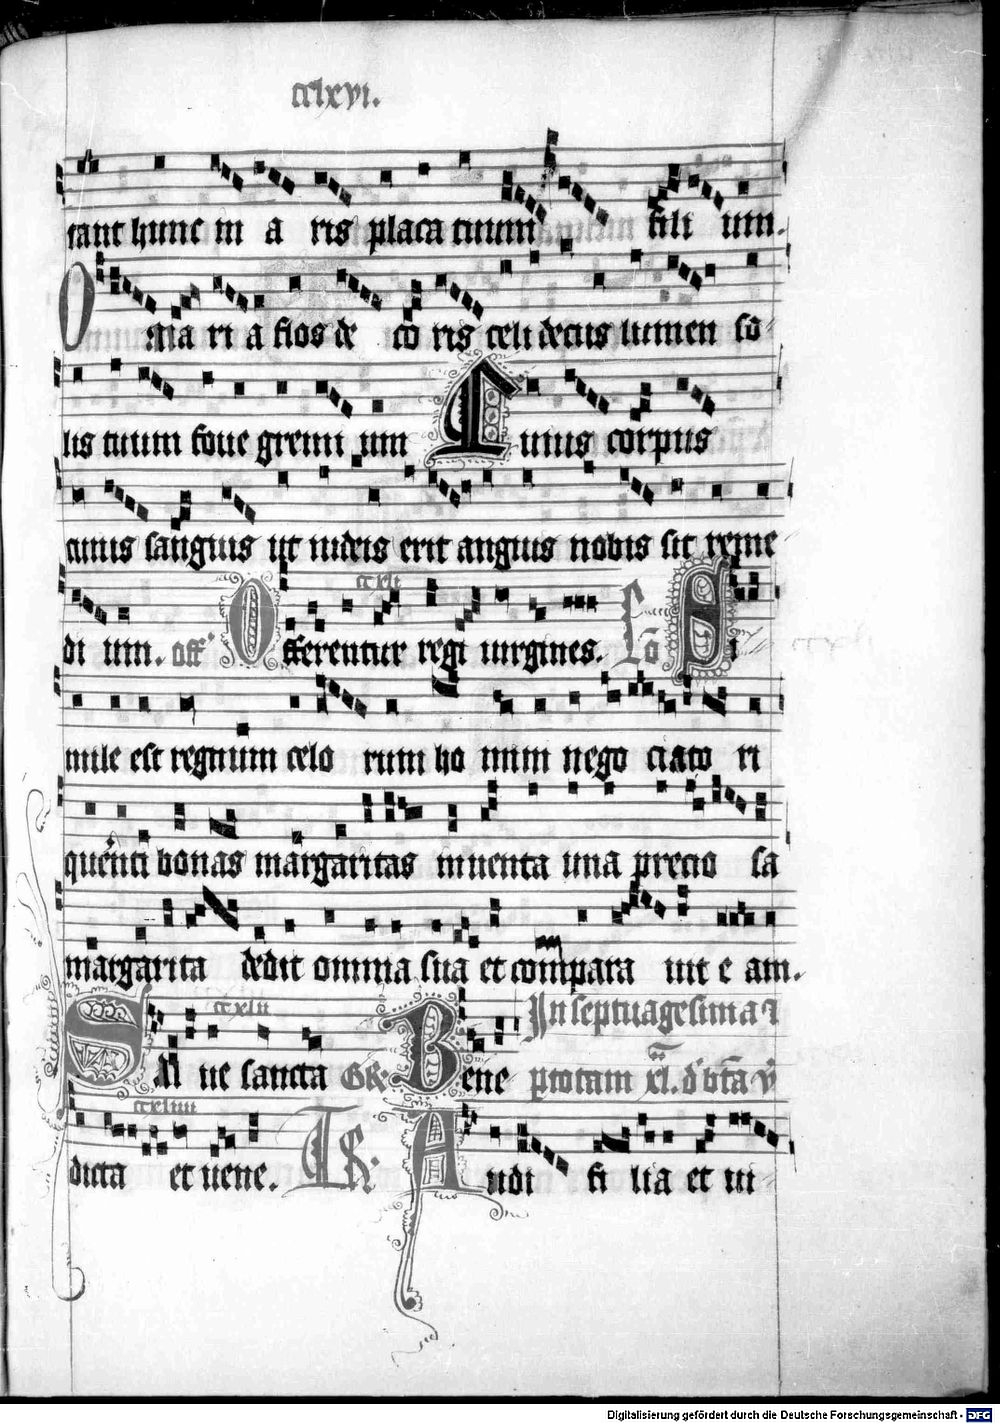 cclxvi.
rant hunc in a ris placa tuum fili um.
O Ma ri a flos de co ris celi decus lumen so
lis tuum foue gremi um Cuius corpus
cuius sanguis ut uideis erit anguis nobis sit reme
di um. off' Offerentur regi uirgines. Co Si
mile est regnum celo rum ho mini nego ciato ri
querenti bonas margaritas inuenta una precio sa
margarita dedit omnia sua et compara uit e am.
Sal ue sancta GR Bene In septuagesima
dicta et uene. TR Audi fi lia et ui
Digitalisierung gefördert durch die Deutsche Forschungsgemeinschaft - DFG